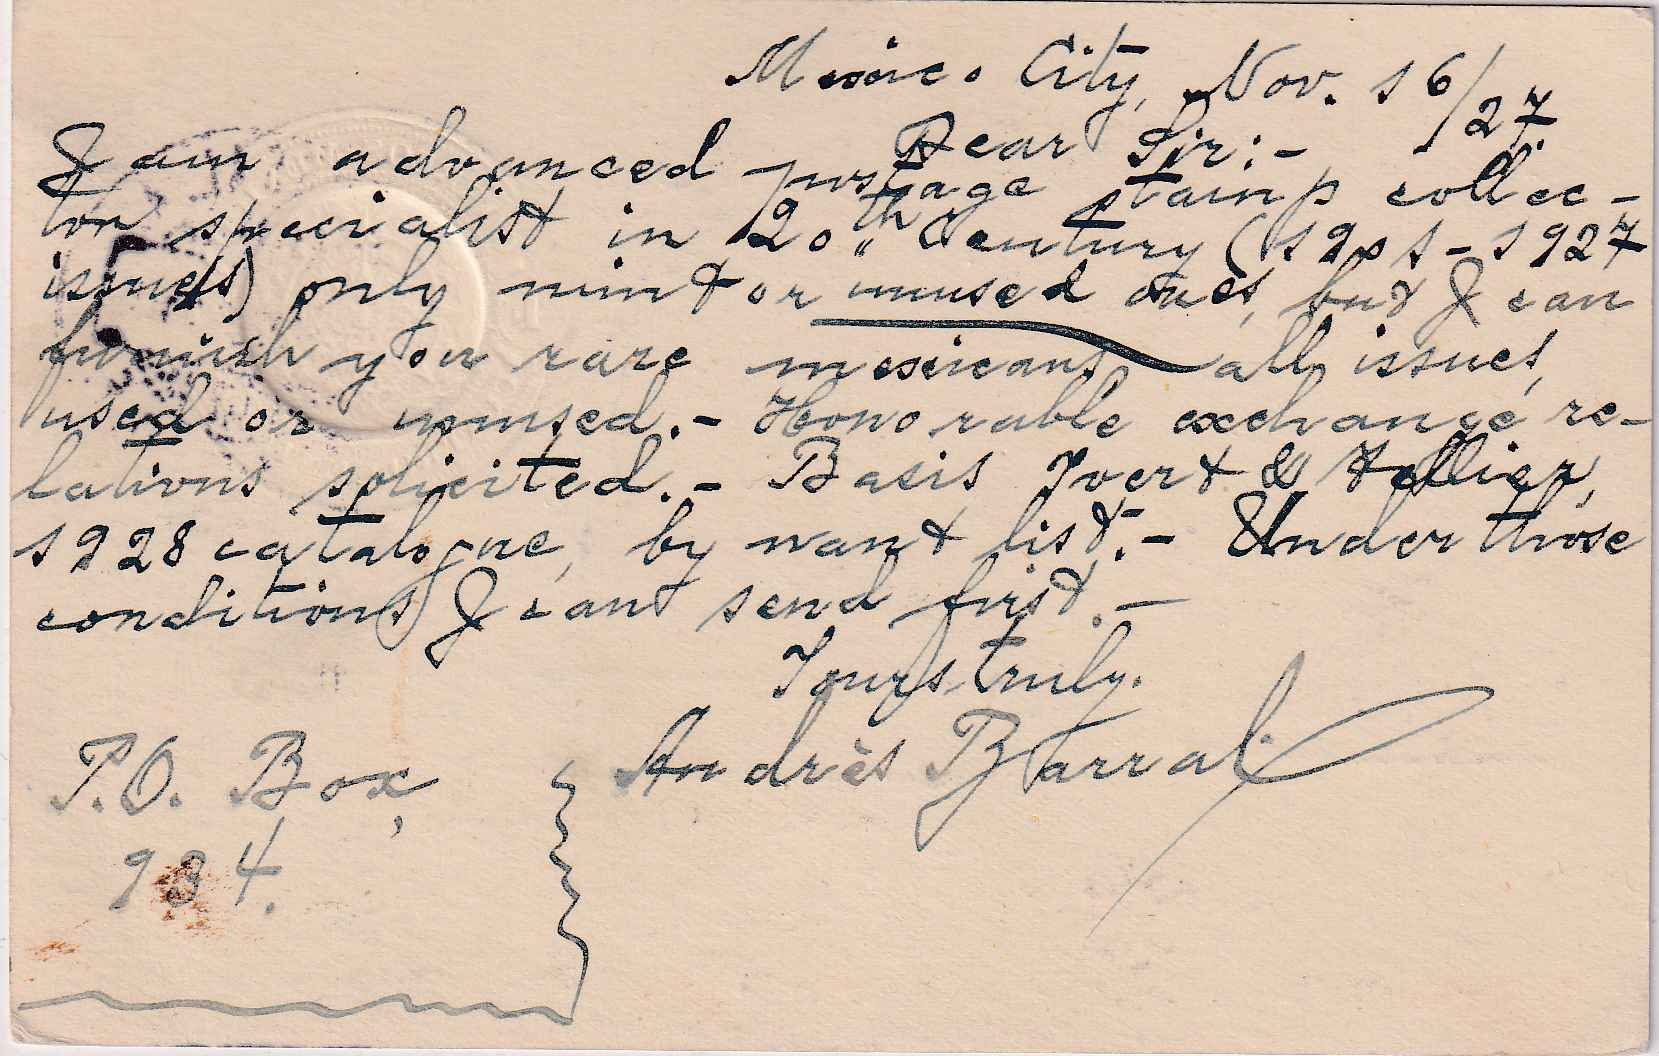 Mexico City, Nov. 16/27.
Dear Sir:-
I am advanced postage stamp collec-
tor specialist in 20th Century (1901-1927
issues) only mint or unused ones, but I can
furnish you rare mexicans all issues,
used or unused.- Honorable exchange re-
lations solicited.- Basis Yvert & Tellier,
1928 catalogue, by want list.- Under those
conditions I can send first.-
Yours truly.
Andrès Barral
P.O. Box,
934.